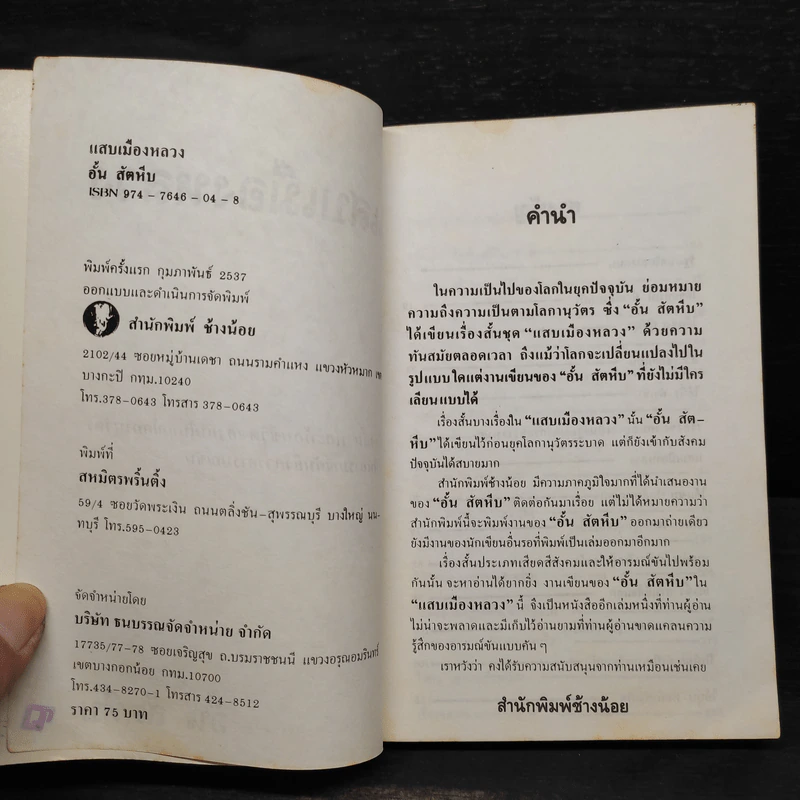 แสบเมืองหลวง
อั้น สัตหีบ
ISBN 974 - 7646 - 04 - 8
พิมพ์ครั้งแรก กุมภาพันธ์ 2537
ออกแบบและดำเนินการจัดพิมพ์
สำนักพิมพ์ ช้างน้อย
2102/44 ซอยหมู่บ้านเดชา ถนนรามคำแหง แขวงหัวหมาก เขต
บางกะปิ กทม.10240
โทร.378-0643 โทรสาร 378-0643
พิมพ์ที่
สหมิตรพริ้นติ้ง
59/4 ซอยวัดพระเงิน ถนนตลิ่งชัน-สุพรรณบุรี บางใหญ่ นน-
ทบุรี โทร.595-0423
จัดจำหน่ายโดย
บริษัท ธนบรรณจัดจำหน่าย จำกัด
17735/77-78 ซอยเจริญสุข ถ.บรมราชชนนี แขวงอรุณอมรินทร์
เขตบางกอกน้อย กทม.10700
โทร.434-8270-1 โทรสาร 424-8512
ราคา 75 บาท
คำนำ
ในความเป็นไปของโลกในยุคปัจจุบัน ย่อมหมาย
ความถึงความเป็นตามโลกานุวัตร ซึ่ง “อั้น สัตหีบ”
ได้เขียนเรื่องสั้นชุด “แสบเมืองหลวง” ด้วยความ
ทันสมัยตลอดเวลา ถึงแม้ว่าโลกจะเปลี่ยนแปลงไปใน
รูปแบบใดแต่งานเขียนของ “อั้น สัตหีบ” ที่ยังไม่มีใคร
เลียนแบบได้
เรื่องสั้นบางเรื่องใน “แสบเมืองหลวง” นั้น “อั้น สัต-
หีบ” ได้เขียนไว้ก่อนยุคโลกานุวัตรระบาด แต่ก็ยังเข้ากับสังคม
ปัจจุบันได้สบายมาก
สำนักพิมพ์ช้างน้อย มีความภาคภูมิใจมากที่ได้นำเสนองาน
ของ “อั้น สัตหีบ” ติดต่อกันมาเรื่อย แต่ไม่ได้หมายความว่า
สำนักพิมพ์นี้จะพิมพ์งานของ “อั้น สัตหีบ” ออกมาถ่ายเดียว
ยังมีงานของนักเขียนอื่นรอที่พิมพ์เป็นเล่มออกมาอีกมาก
เรื่องสั้นประเภทเสียดสีสังคมและให้อารมณ์ขันไปพร้อม
กันนั้น จะหาอ่านได้ยากยิ่ง งานเขียนของ “อั้น สัตหีบ” ใน
“แสบเมืองหลวง” นี้ จึงเป็นหนังสืออีกเล่มหนึ่งที่ท่านผู้อ่าน
ไม่น่าจะพลาดและมีเก็บไว้อ่านยามที่ท่านผู้อ่านขาดแคลนความ
รู้สึกของอารมณ์ขันแบบคัน ๆ
เราหวังว่า คงได้รับความสนับสนุนจากท่านเหมือนเช่นเคย
สำนักพิมพ์ช้างน้อย